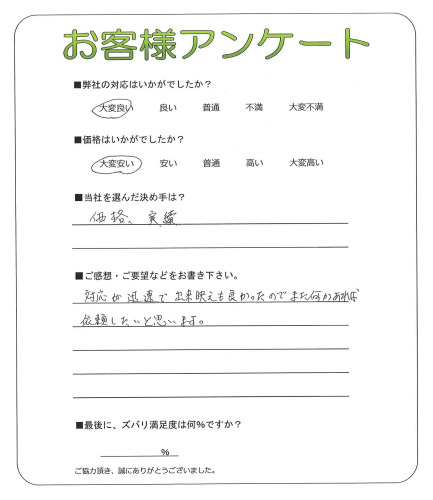 お客様アンケート
■弊社の対応はいかがでしたか？
大変良い 良い 普通 不満 大変不満
■価格はいかがでしたか？
大変安い 安い 普通 高い 大変高い
■当社を選んだ決め手は？
価格、実績
■ご感想・ご要望などをお書き下さい。
対応が迅速で出来映えも良かったのでまた何かあれば
依頼したいと思います。
■最後に、ズバリ満足度は何％ですか？
％
ご協力頂き、誠にありがとうございました。